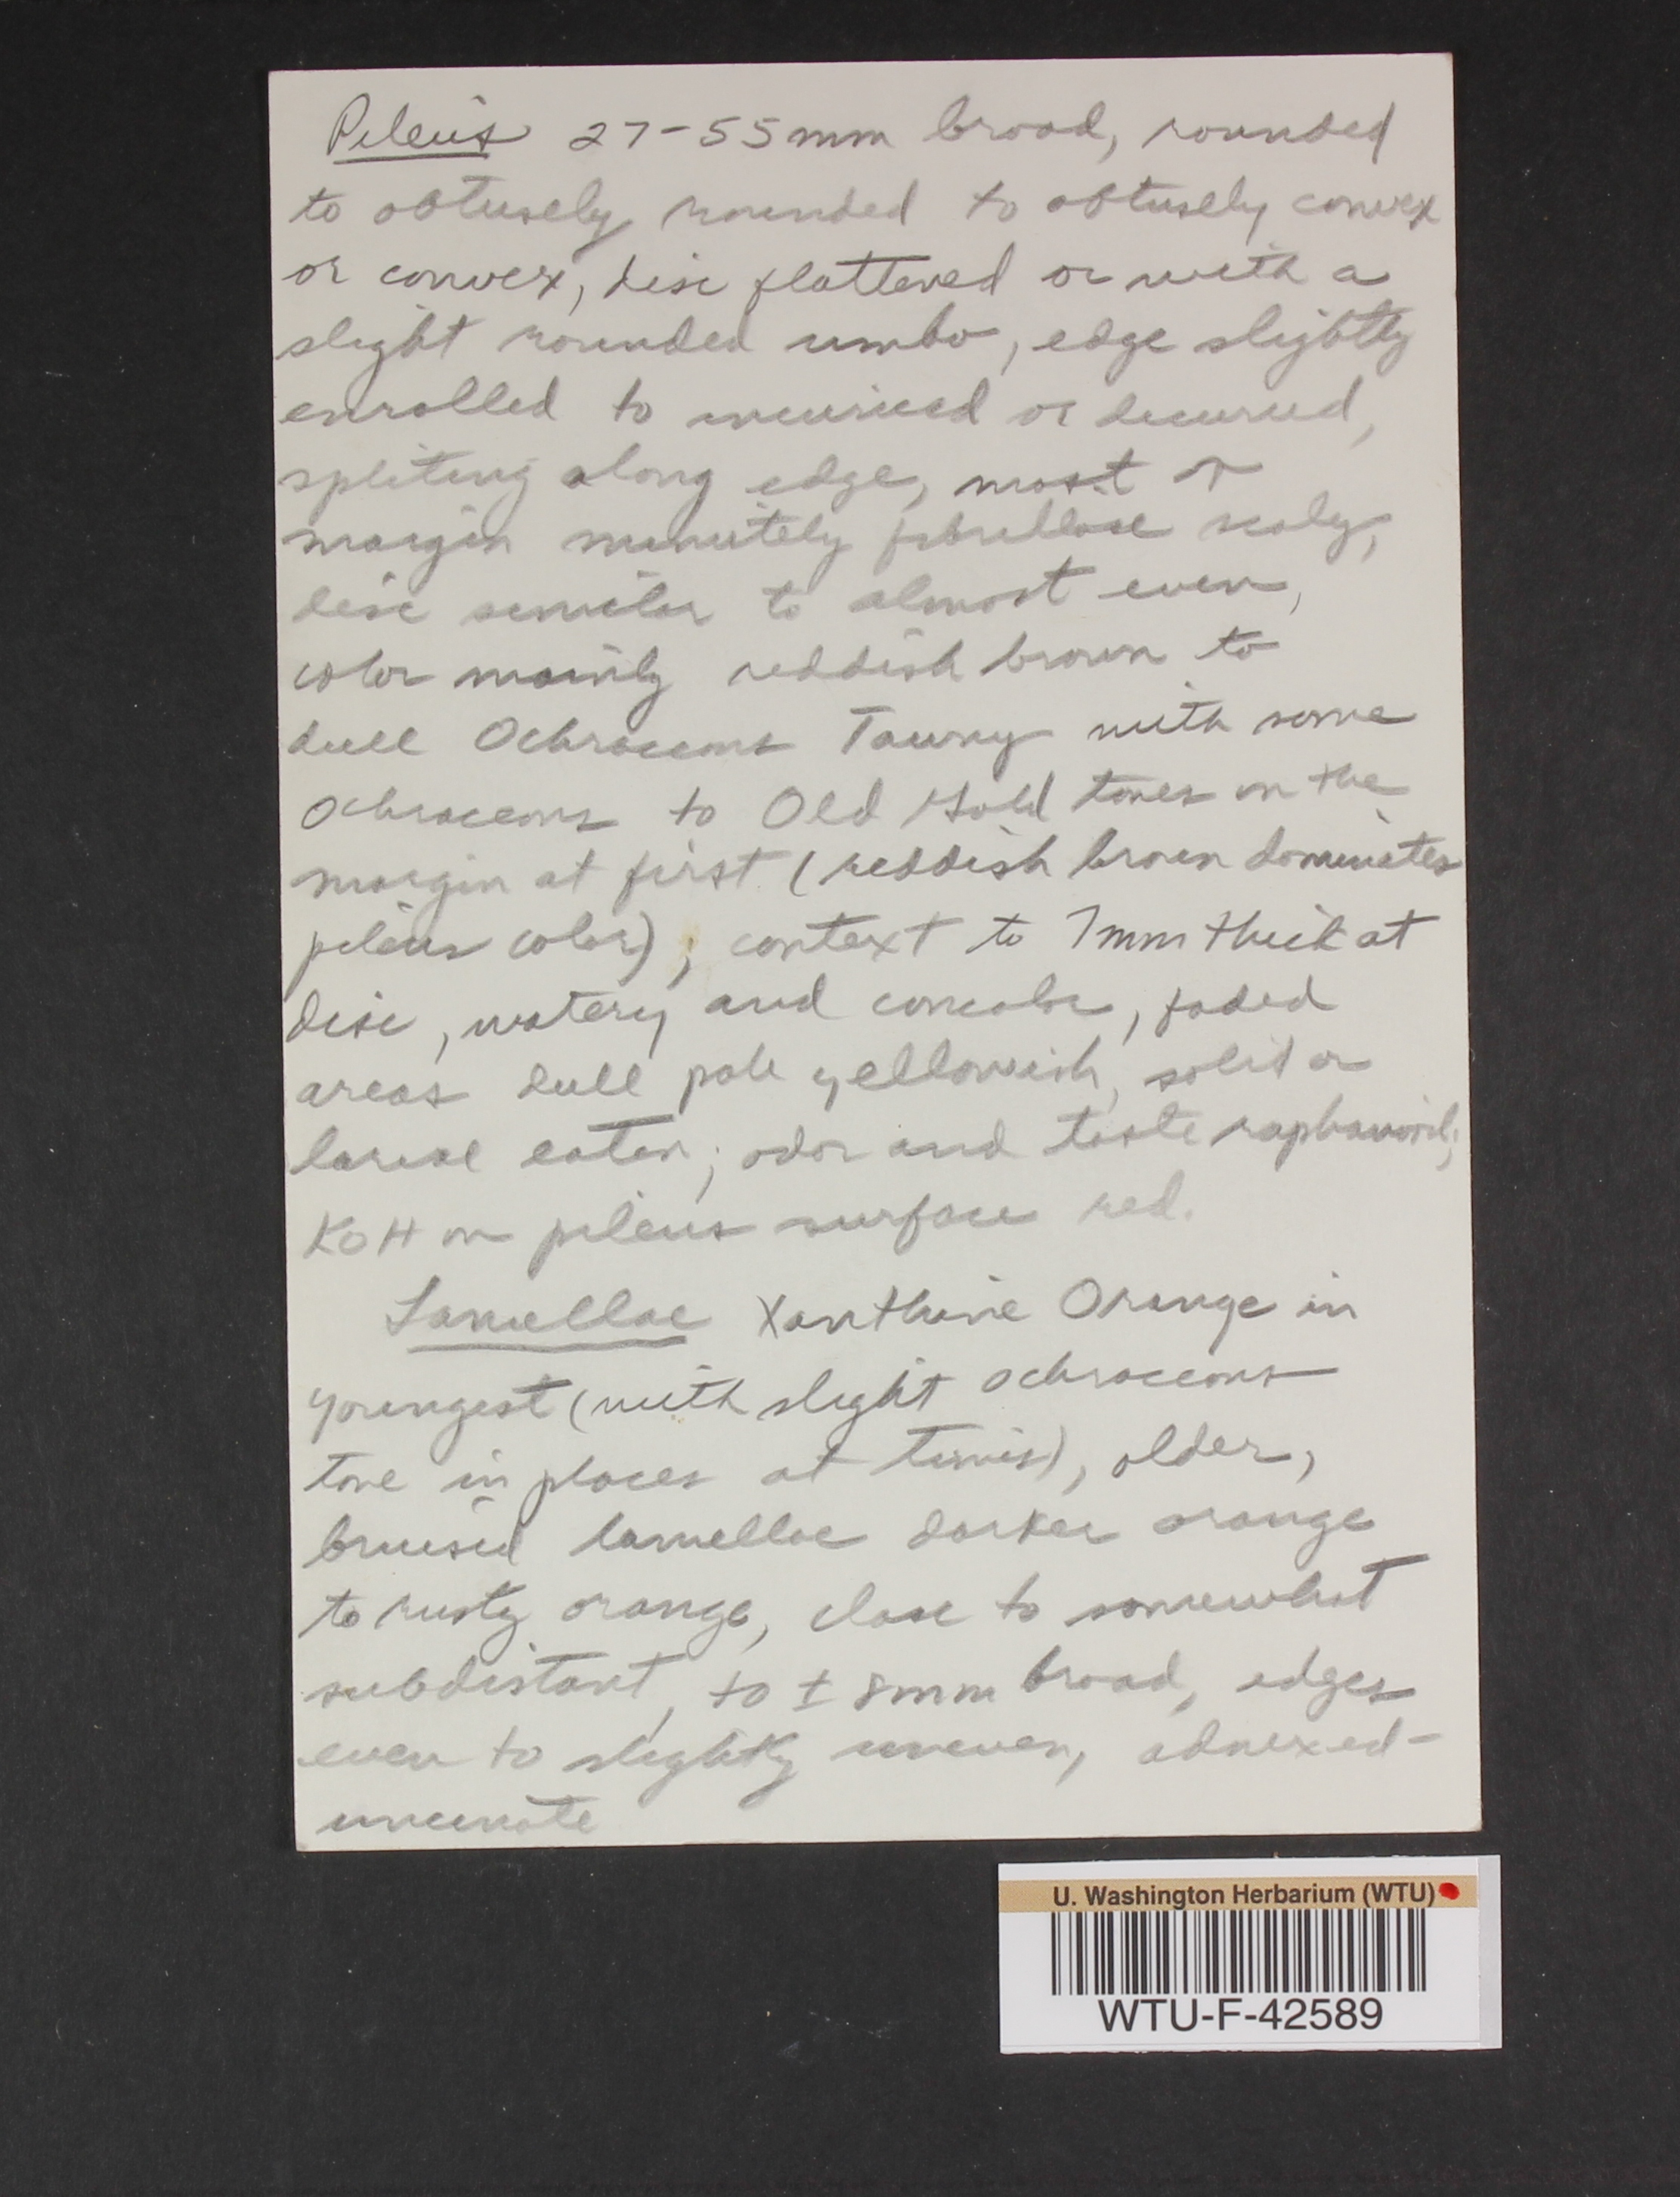 Pileus 27-55mm broad, rounded
to obtusely rounded to obtusely convex
or convex, disc flattened or with a
slight rounded umbo, edge slightly
enrolled to incurved or decurved,
spliting along edge, most of
margin minutely fibrillose scaly,
disc similar to almost even,
color mainly reddish brown to
dull Ochraceous Tawny with some
Ochraceous to Old Gold tones on the
margin at first (reddish brown dominates
pileus color); context to 7mm thick at
disc, watery and concolor, faded
areas dull pale yellowish, solid or
larvae eaten; odor and taste raphanoid;
KOH on pileus surface red.
Lamellae Xanthine Orange in
youngest (with slight ochraceous
tone in places at times), older,
bruised lamellae darker orange
to rusty orange, close to somewhat
subdistant, to ± 8mm broad, edges
even to slightly uneven, adnexed-
uncinate
U. Washington Herbarium (WTU)
WTU-F-42589